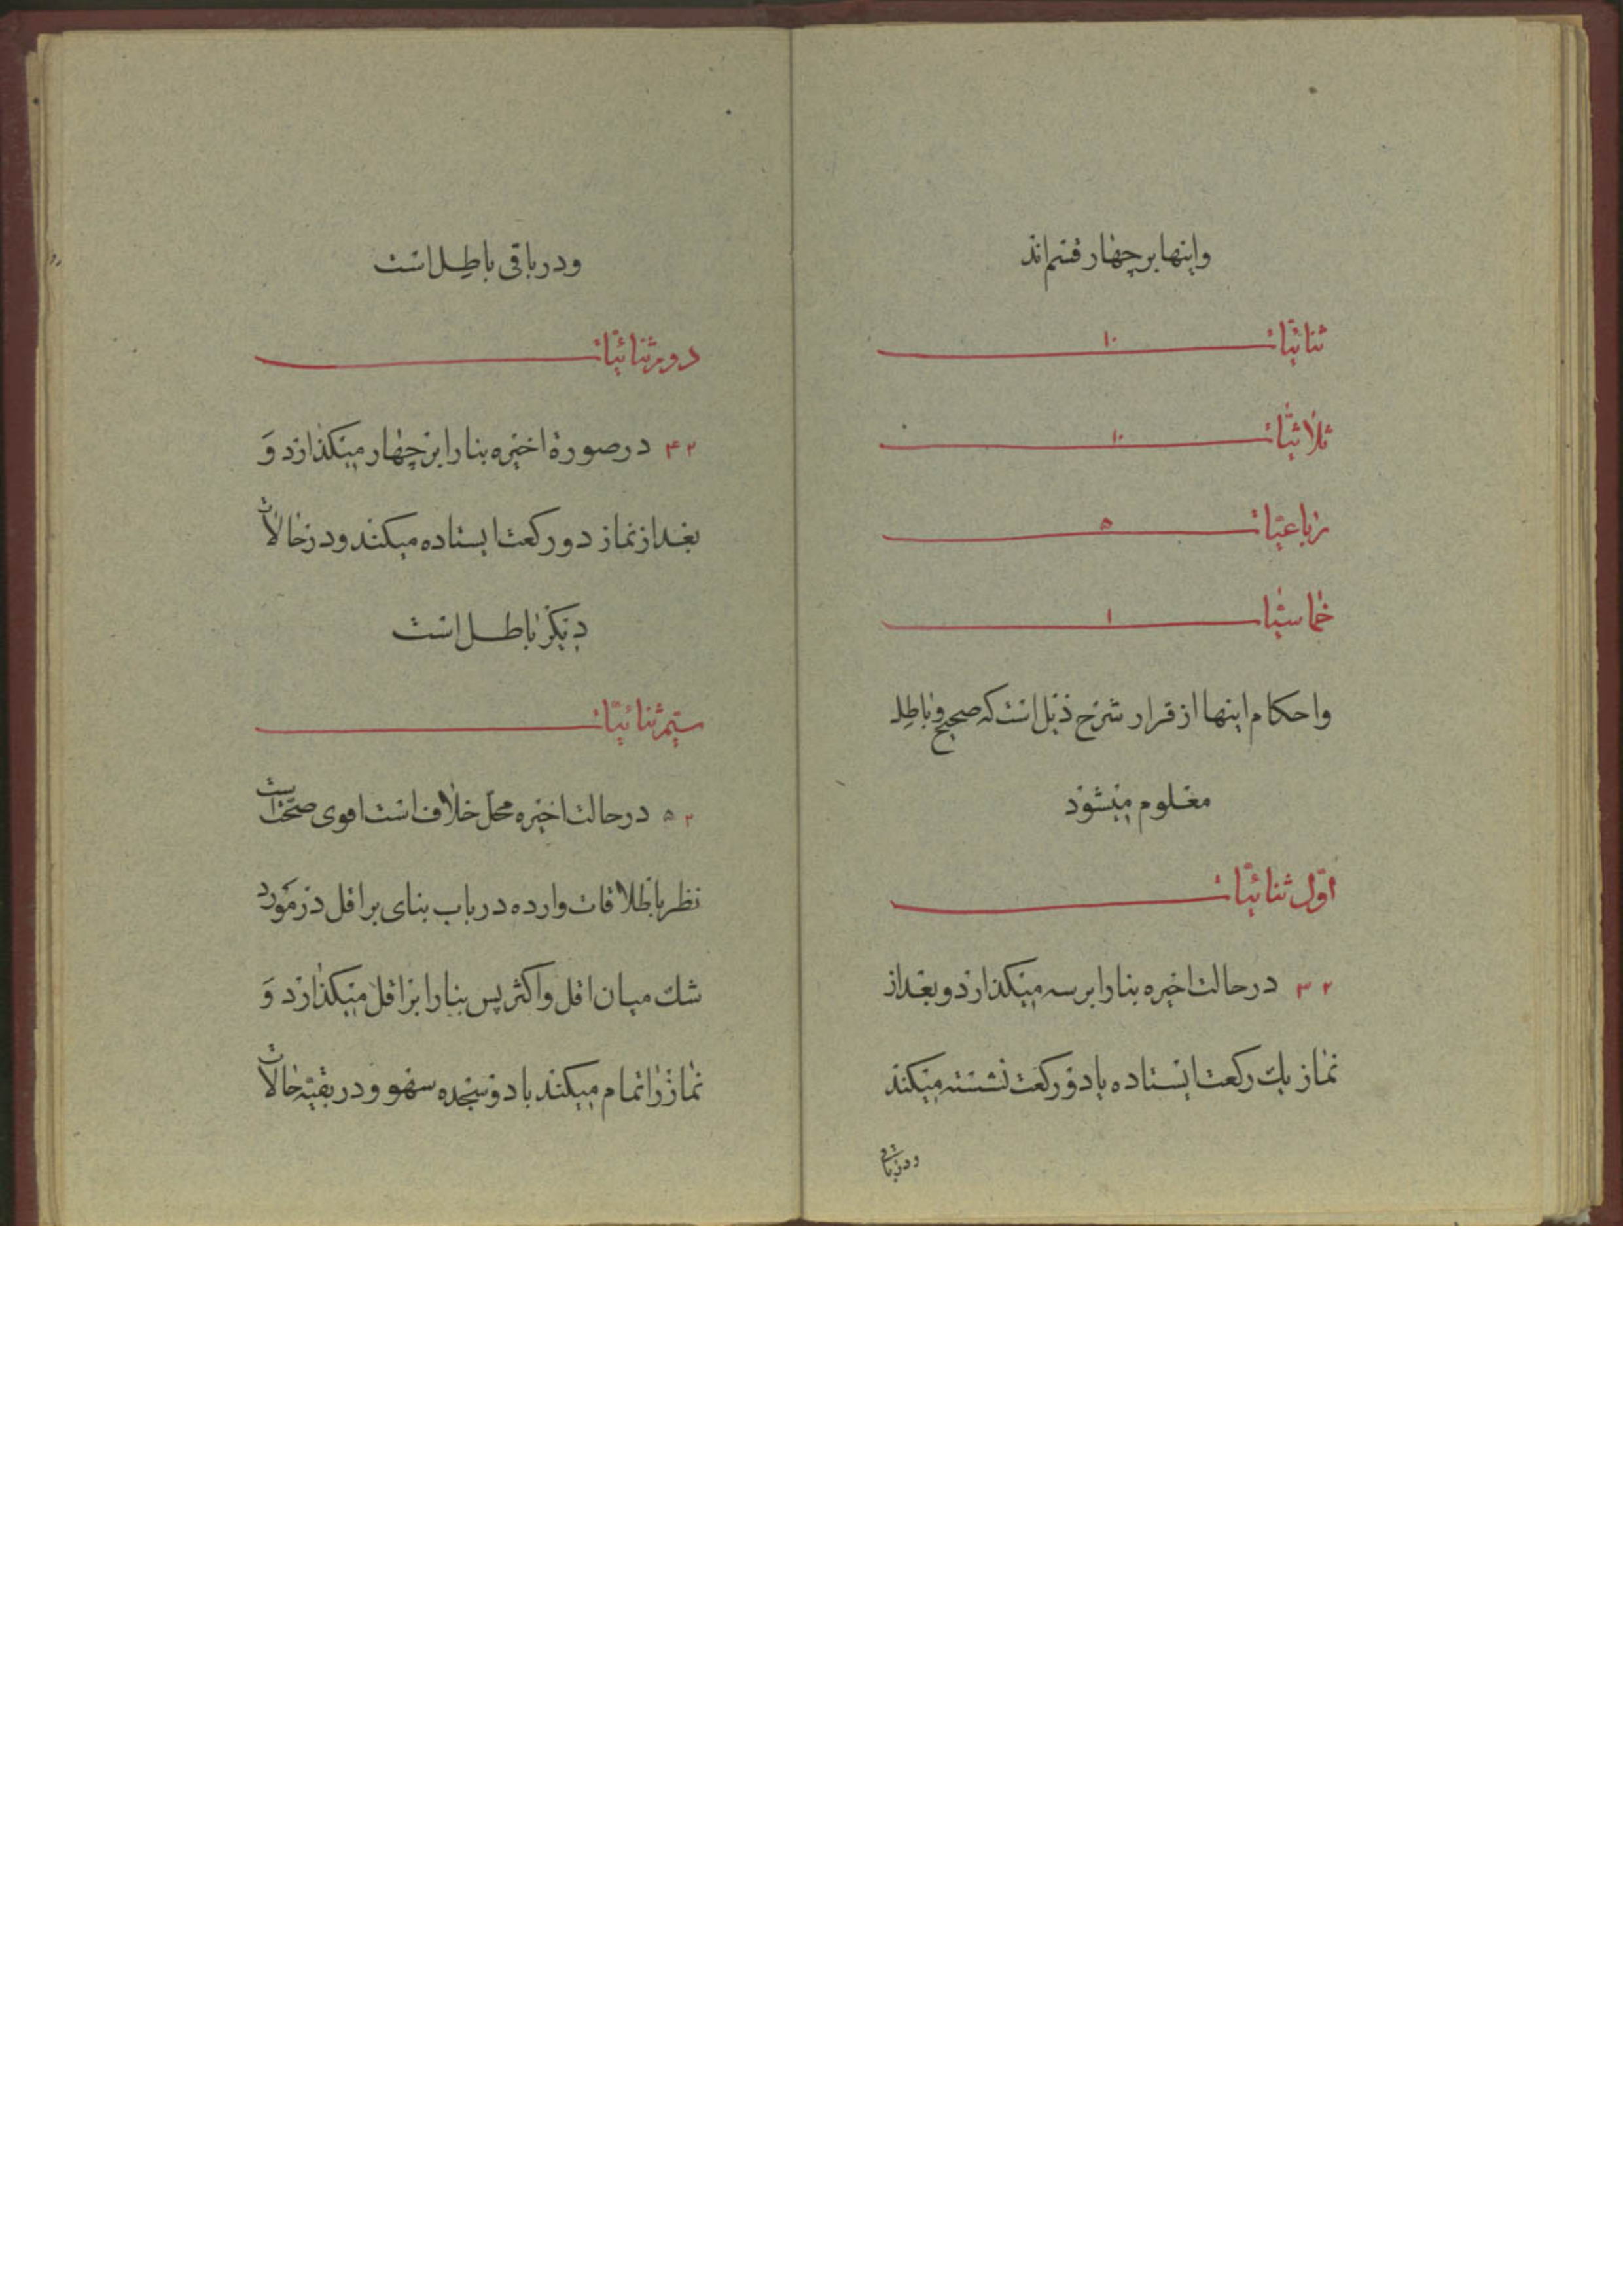 واینها بر چهار قسم‌اند
ثنائیّات ۱۰
ثلاثیّات ۱۰
رباعیّات ۵
خماسیّات ۱
واحکام اینها از قرار شرح ذیل است که صحیح و باطل
معلوم میشود
اوّل ثنائیّات
۲ ۳ در حالت اخیره بنا را بر سه میکذارد و بعد از
نماز یك رکعت ایستاده یا دو رکعت نشسته میکند
ودر باقی
ودر باقی باطل است
دویم ثنائیّات
۲ ۴ در صورة اخیره بنا را بر چهار میکذارد وَ
بعد از نماز دو رکعت ایستاده میکند ودر حالات
دیکر باطل است
سیّم ثنائیّات
۲ ۵ در حالت اخیره محلّ خلاف است اقوی صحّت است
نظر باطلاقات وارده در باب بنای بر اقل در مورد
شك میان اقل واکثر پس بنا را بر اقل میکذارد وَ
نماز را تمام میکند با دو سجده سهو ودر بقیّه حالات